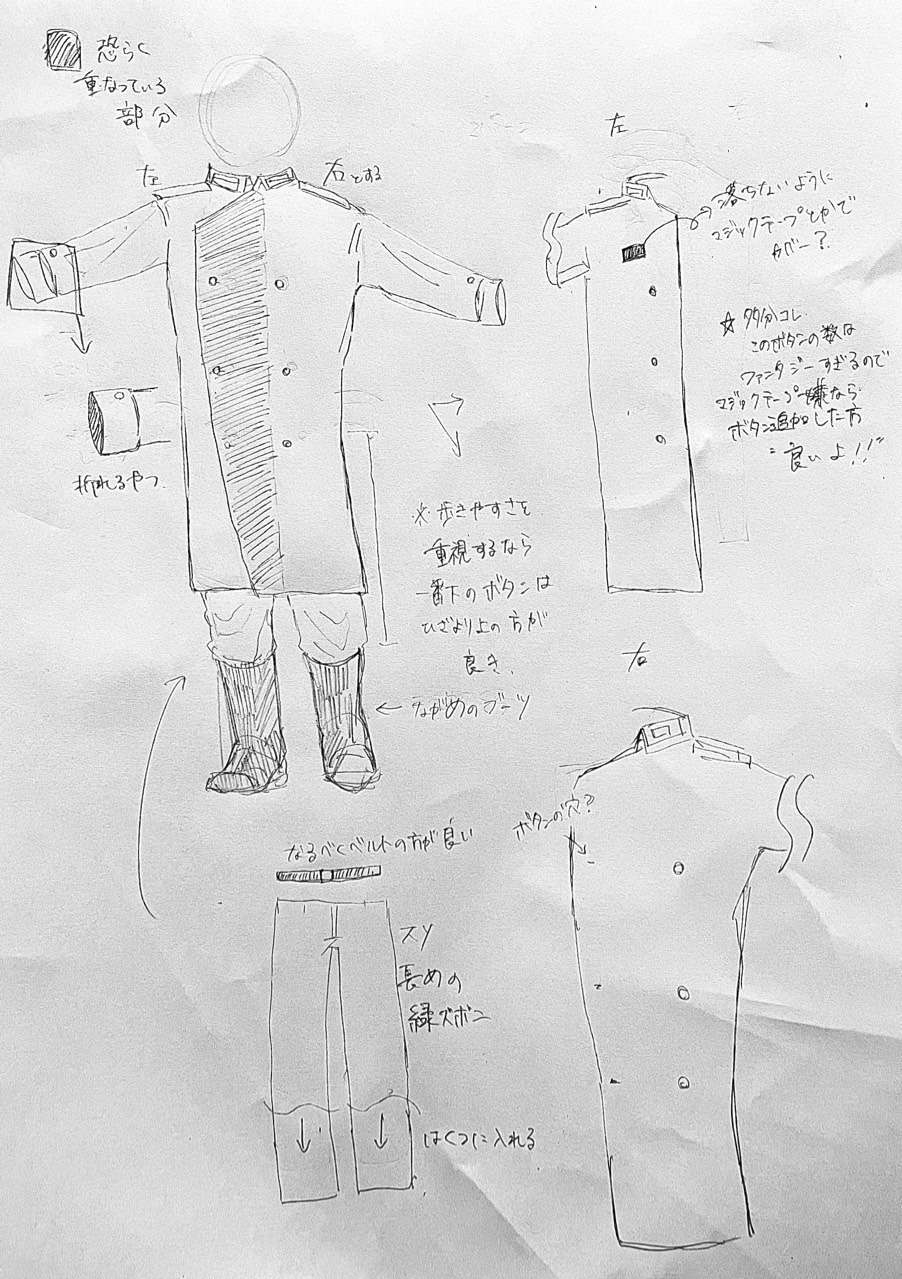 恐らく
重なっている
部分
左
右とする
折れるやつ
左
落ちないように
マジックテープとかで
カバー?
☆ 多分コレ
このボタンの数は
ファンタジーすぎるので
マジックテープ嫌なら
ボタン追加した方
良いよ!!
※歩きやすさを
重視するなら
一番下のボタンは
ひざより上の方が
良き、
← ながめのブーツ
右
ボタンの穴?
なるべくベルトの方が良い
長めの
緑ズボン
はくつに入れる